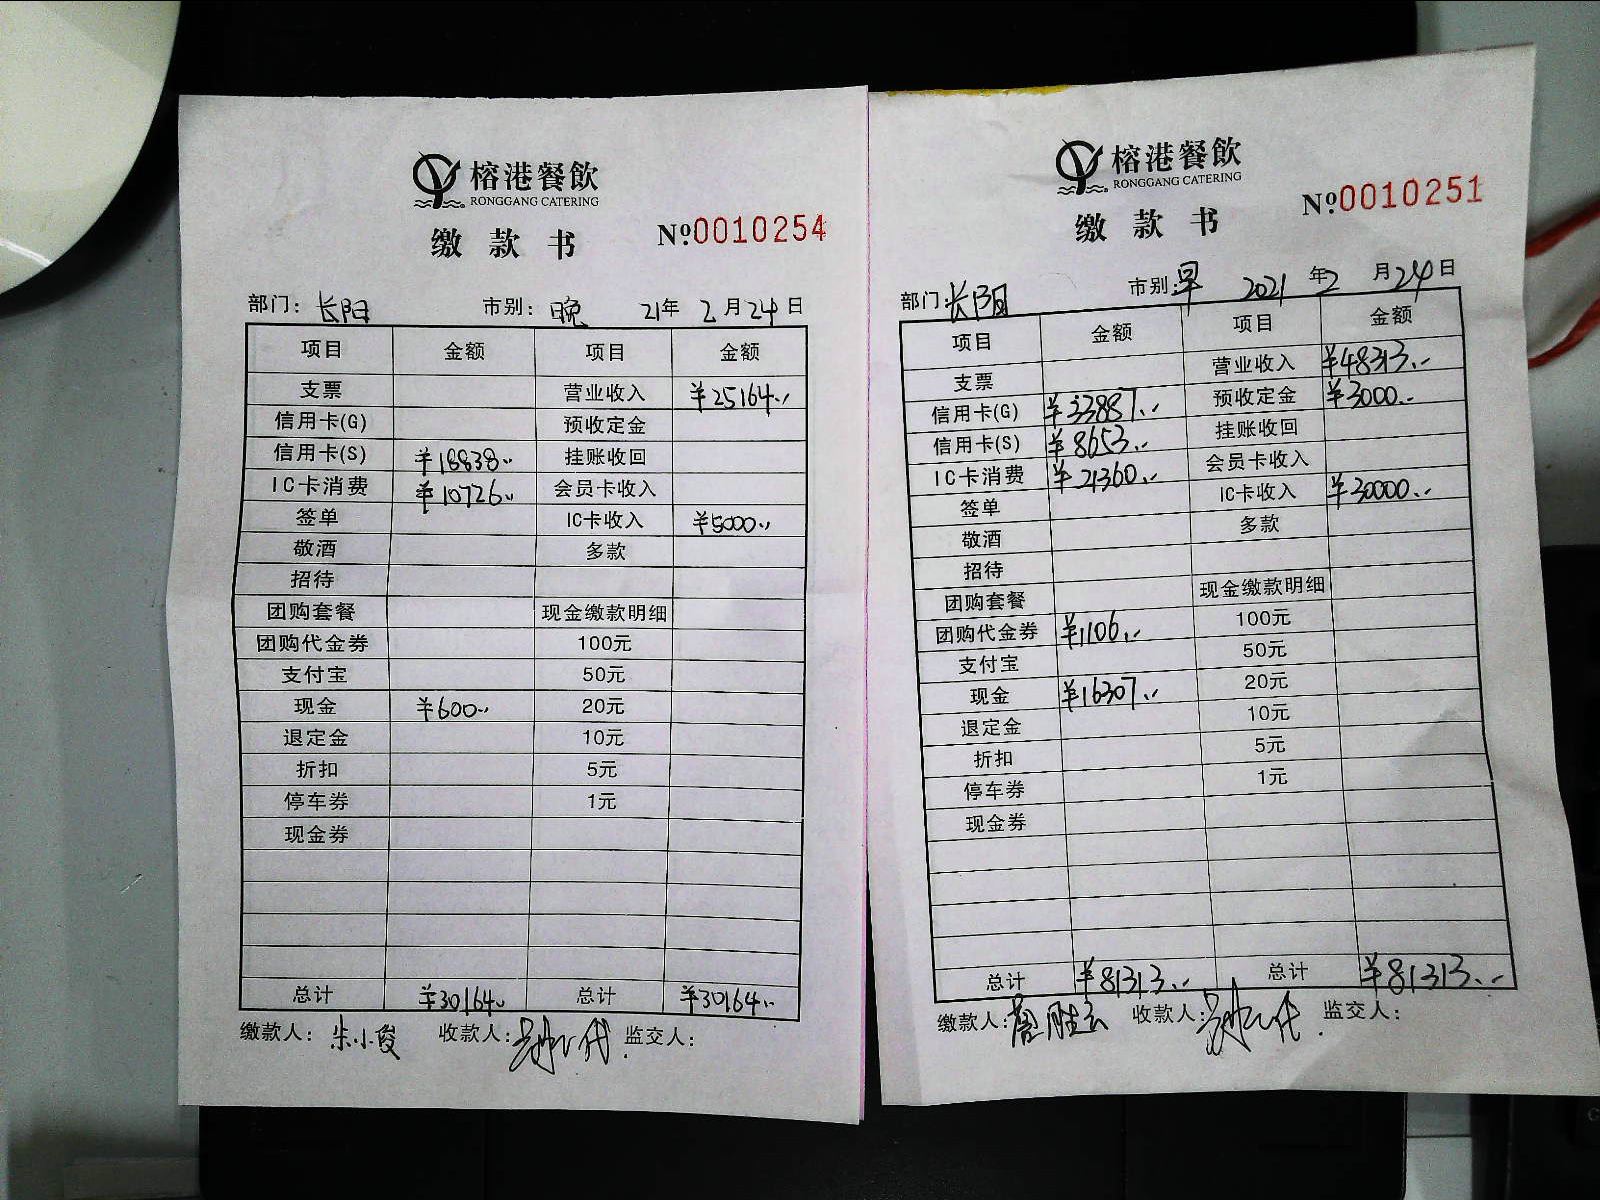 榕港餐飲
RONGGANG CATERING
缴款书 №0010254
部门：长阳 市别：晚 21年2月24日
项目 金额 项目 金额
支票 营业收入 ¥25164..
信用卡(G) 预收定金
信用卡(S) ¥18838.. 挂账收回
IC卡消费 ¥10726.. 会员卡收入
签单 IC卡收入 ¥5000..
敬酒 多款
招待
团购套餐 现金缴款明细
团购代金券 100元
支付宝 50元
现金 ¥600.. 20元
退定金 10元
折扣 5元
停车券 1元
现金券
总计 ¥30164.. 总计 ¥30164..
缴款人：朱小俊 收款人： 监交人：
榕港餐飲
RONGGANG CATERING
缴款书 №0010251
部门：长阳 市别：早 2021年2月24日
项目 金额 项目 金额
支票 营业收入 ¥48313..
信用卡(G) ¥33887.. 预收定金 ¥3000..
信用卡(S) ¥8653.. 挂账收回
IC卡消费 ¥21360.. 会员卡收入
签单 IC卡收入 ¥30000..
敬酒 多款
招待
团购套餐 现金缴款明细
团购代金券 ¥1106.. 100元
支付宝 50元
现金 ¥16307.. 20元
退定金 10元
折扣 5元
停车券 1元
现金券
总计 ¥81313.. 总计 ¥81313..
缴款人： 收款人： 监交人：